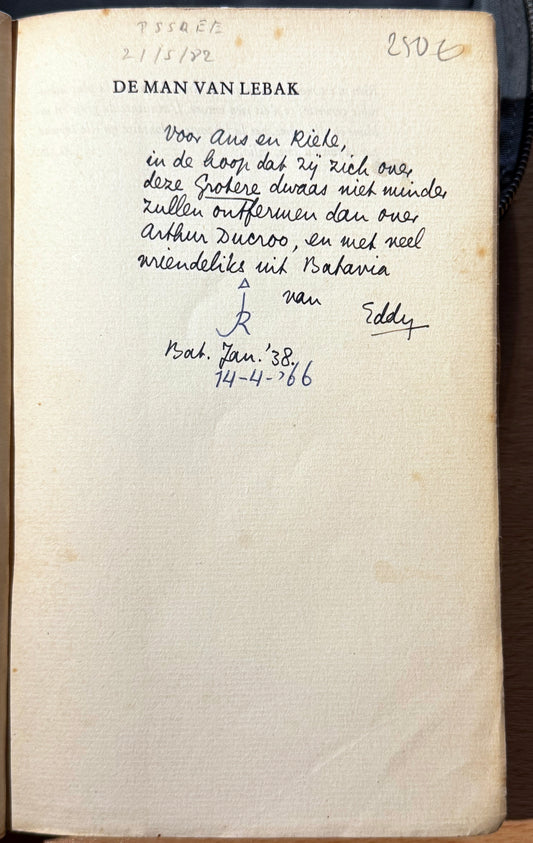 21/5/82
DE MAN VAN LEBAK
Voor Ans en Riete,
in de hoop dat zij zich over
deze Grotere dwaas niet minder
zullen ontfermen dan over
Arthur Ducroo, en met veel
vriendeliks uit Batavia
van Eddy
Bat. Jan. '38.
14-4-'66